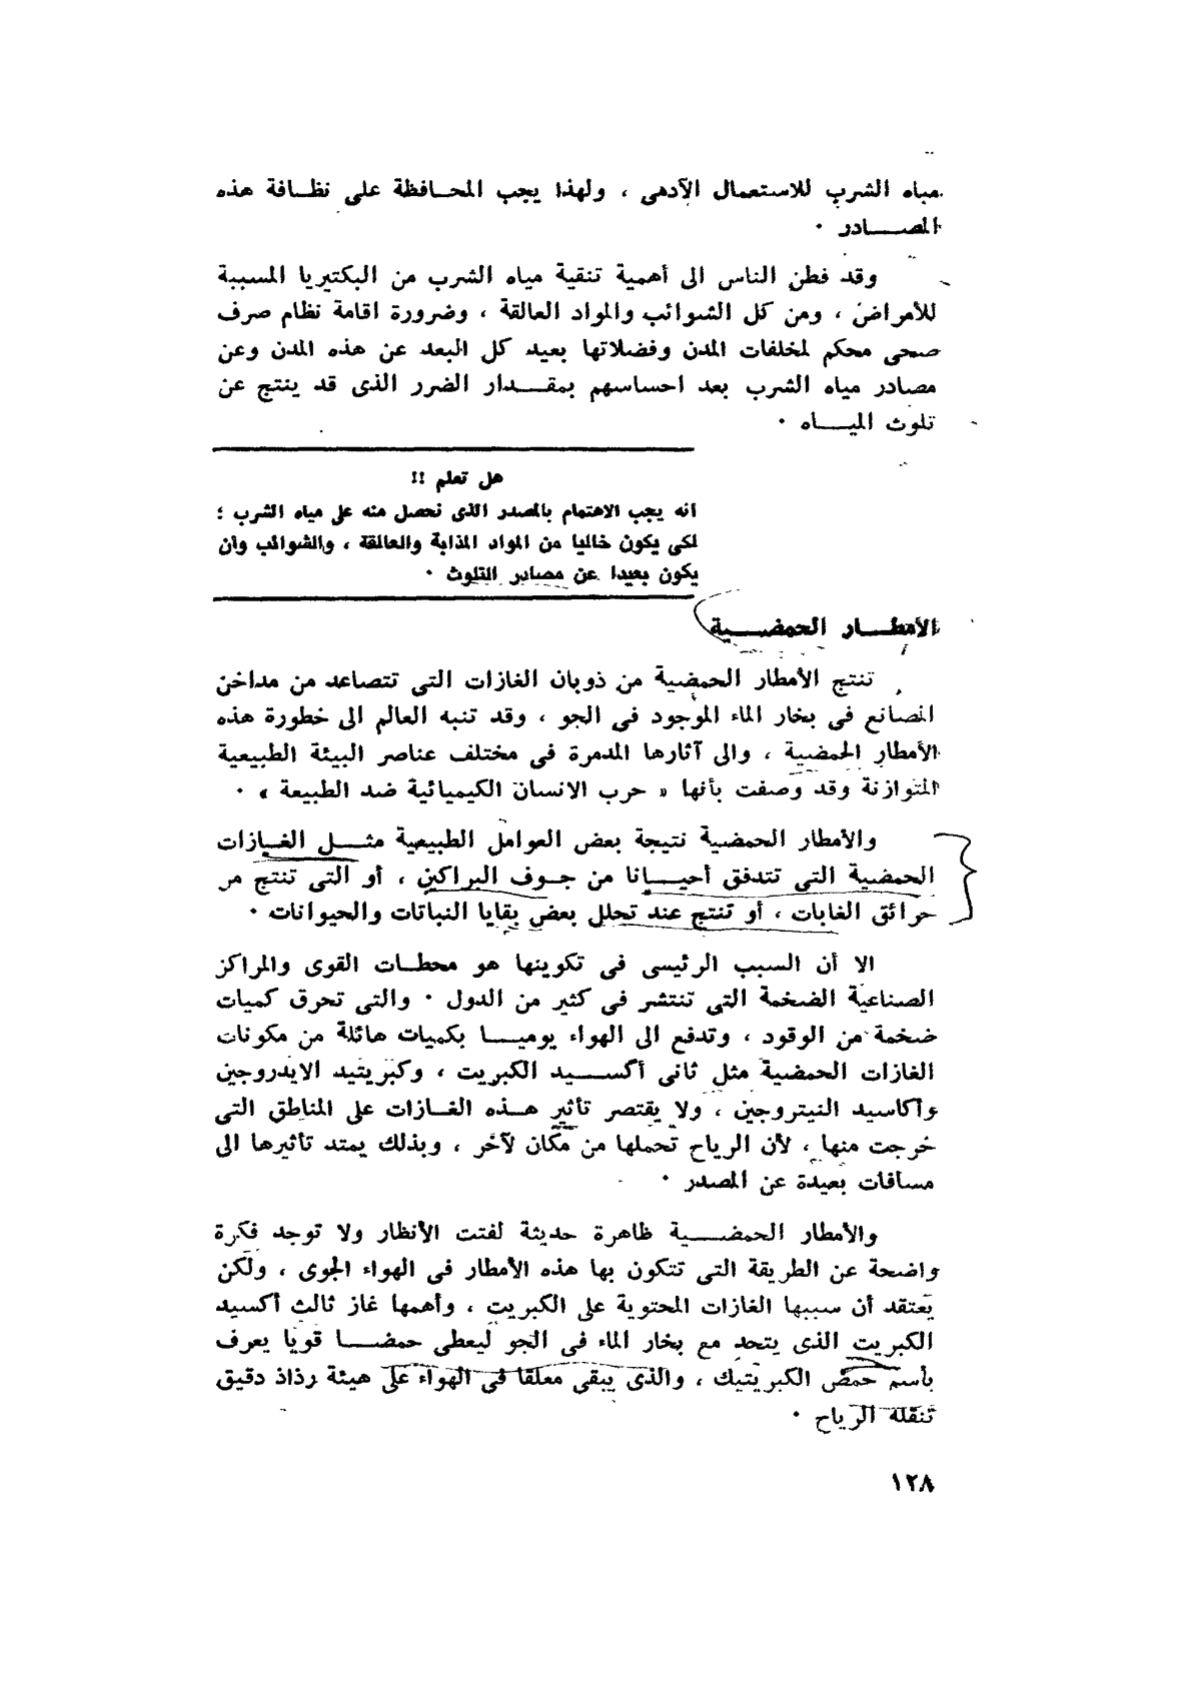 مياه الشرب للاستعمال الآدمى ، ولهذا يجب المحافظة على نظافة هذه
المصادر ٠
وقد فطن الناس الى أهمية تنقية مياه الشرب من البكتيريا المسببة
للأمراض ، ومن كل الشوائب والمواد العالقة ، وضرورة اقامة نظام صرف
صحى محكم لمخلفات المدن وفضلاتها بعيد كل البعد عن هذه المدن وعن
مصادر مياه الشرب بعد احساسهم بمقدار الضرر الذى قد ينتج عن
تلوث المياه ٠
هل تعلم !!
انه يجب الاهتمام بالمصدر الذى نحصل منه على مياه الشرب ؛
لكى يكون خاليا من المواد المذابة والعالقة ، والشوائب وأن
يكون بعيدا عن مصادر التلوث ٠
الأمطار الحمضية
تنتج الأمطار الحمضية من ذوبان الغازات التى تتصاعد من مداخن
المصانع فى بخار الماء الموجود فى الجو ، وقد تنبه العالم الى خطورة هذه
الأمطار الحمضية ، والى آثارها المدمرة فى مختلف عناصر البيئة الطبيعية
المتوازنة وقد وصفت بأنها « حرب الانسان الكيميائية ضد الطبيعة » ٠
والأمطار الحمضية نتيجة بعض العوامل الطبيعية مثل الغازات
الحمضية التى تتدفق أحيانا من جوف البراكين ، أو التى تنتج من
حرائق الغابات ، أو تنتج عند تحلل بعض بقايا النباتات والحيوانات ٠
الا أن السبب الرئيسى فى تكوينها هو محطات القوى والمراكز
الصناعية الضخمة التى تنتشر فى كثير من الدول ٠ والتى تحرق كميات
ضخمة من الوقود ، وتدفع الى الهواء يوميا بكميات هائلة من مكونات
الغازات الحمضية مثل ثانى أكسيد الكبريت ، وكبريتيد الايدروجين
وأكاسيد النيتروجين ، ولا يقتصر تأثير هذه الغازات على المناطق التى
خرجت منها ، لأن الرياح تحملها من مكان لآخر ، وبذلك يمتد تأثيرها الى
مسافات بعيدة عن المصدر ٠
والأمطار الحمضية ظاهرة حديثة لفتت الأنظار ولا توجد فكرة
واضحة عن الطريقة التى تتكون بها هذه الأمطار فى الهواء الجوى ، ولكن
يعتقد أن سببها الغازات المحتوية على الكبريت ، وأهمها غاز ثالث أكسيد
الكبريت الذى يتحد مع بخار الماء فى الجو ليعطى حمضا قويا يعرف
بأسم حمض الكبريتيك ، والذى يبقى معلقا فى الهواء على هيئة رذاذ دقيق
تنقله الرياح ٠
١٢٨